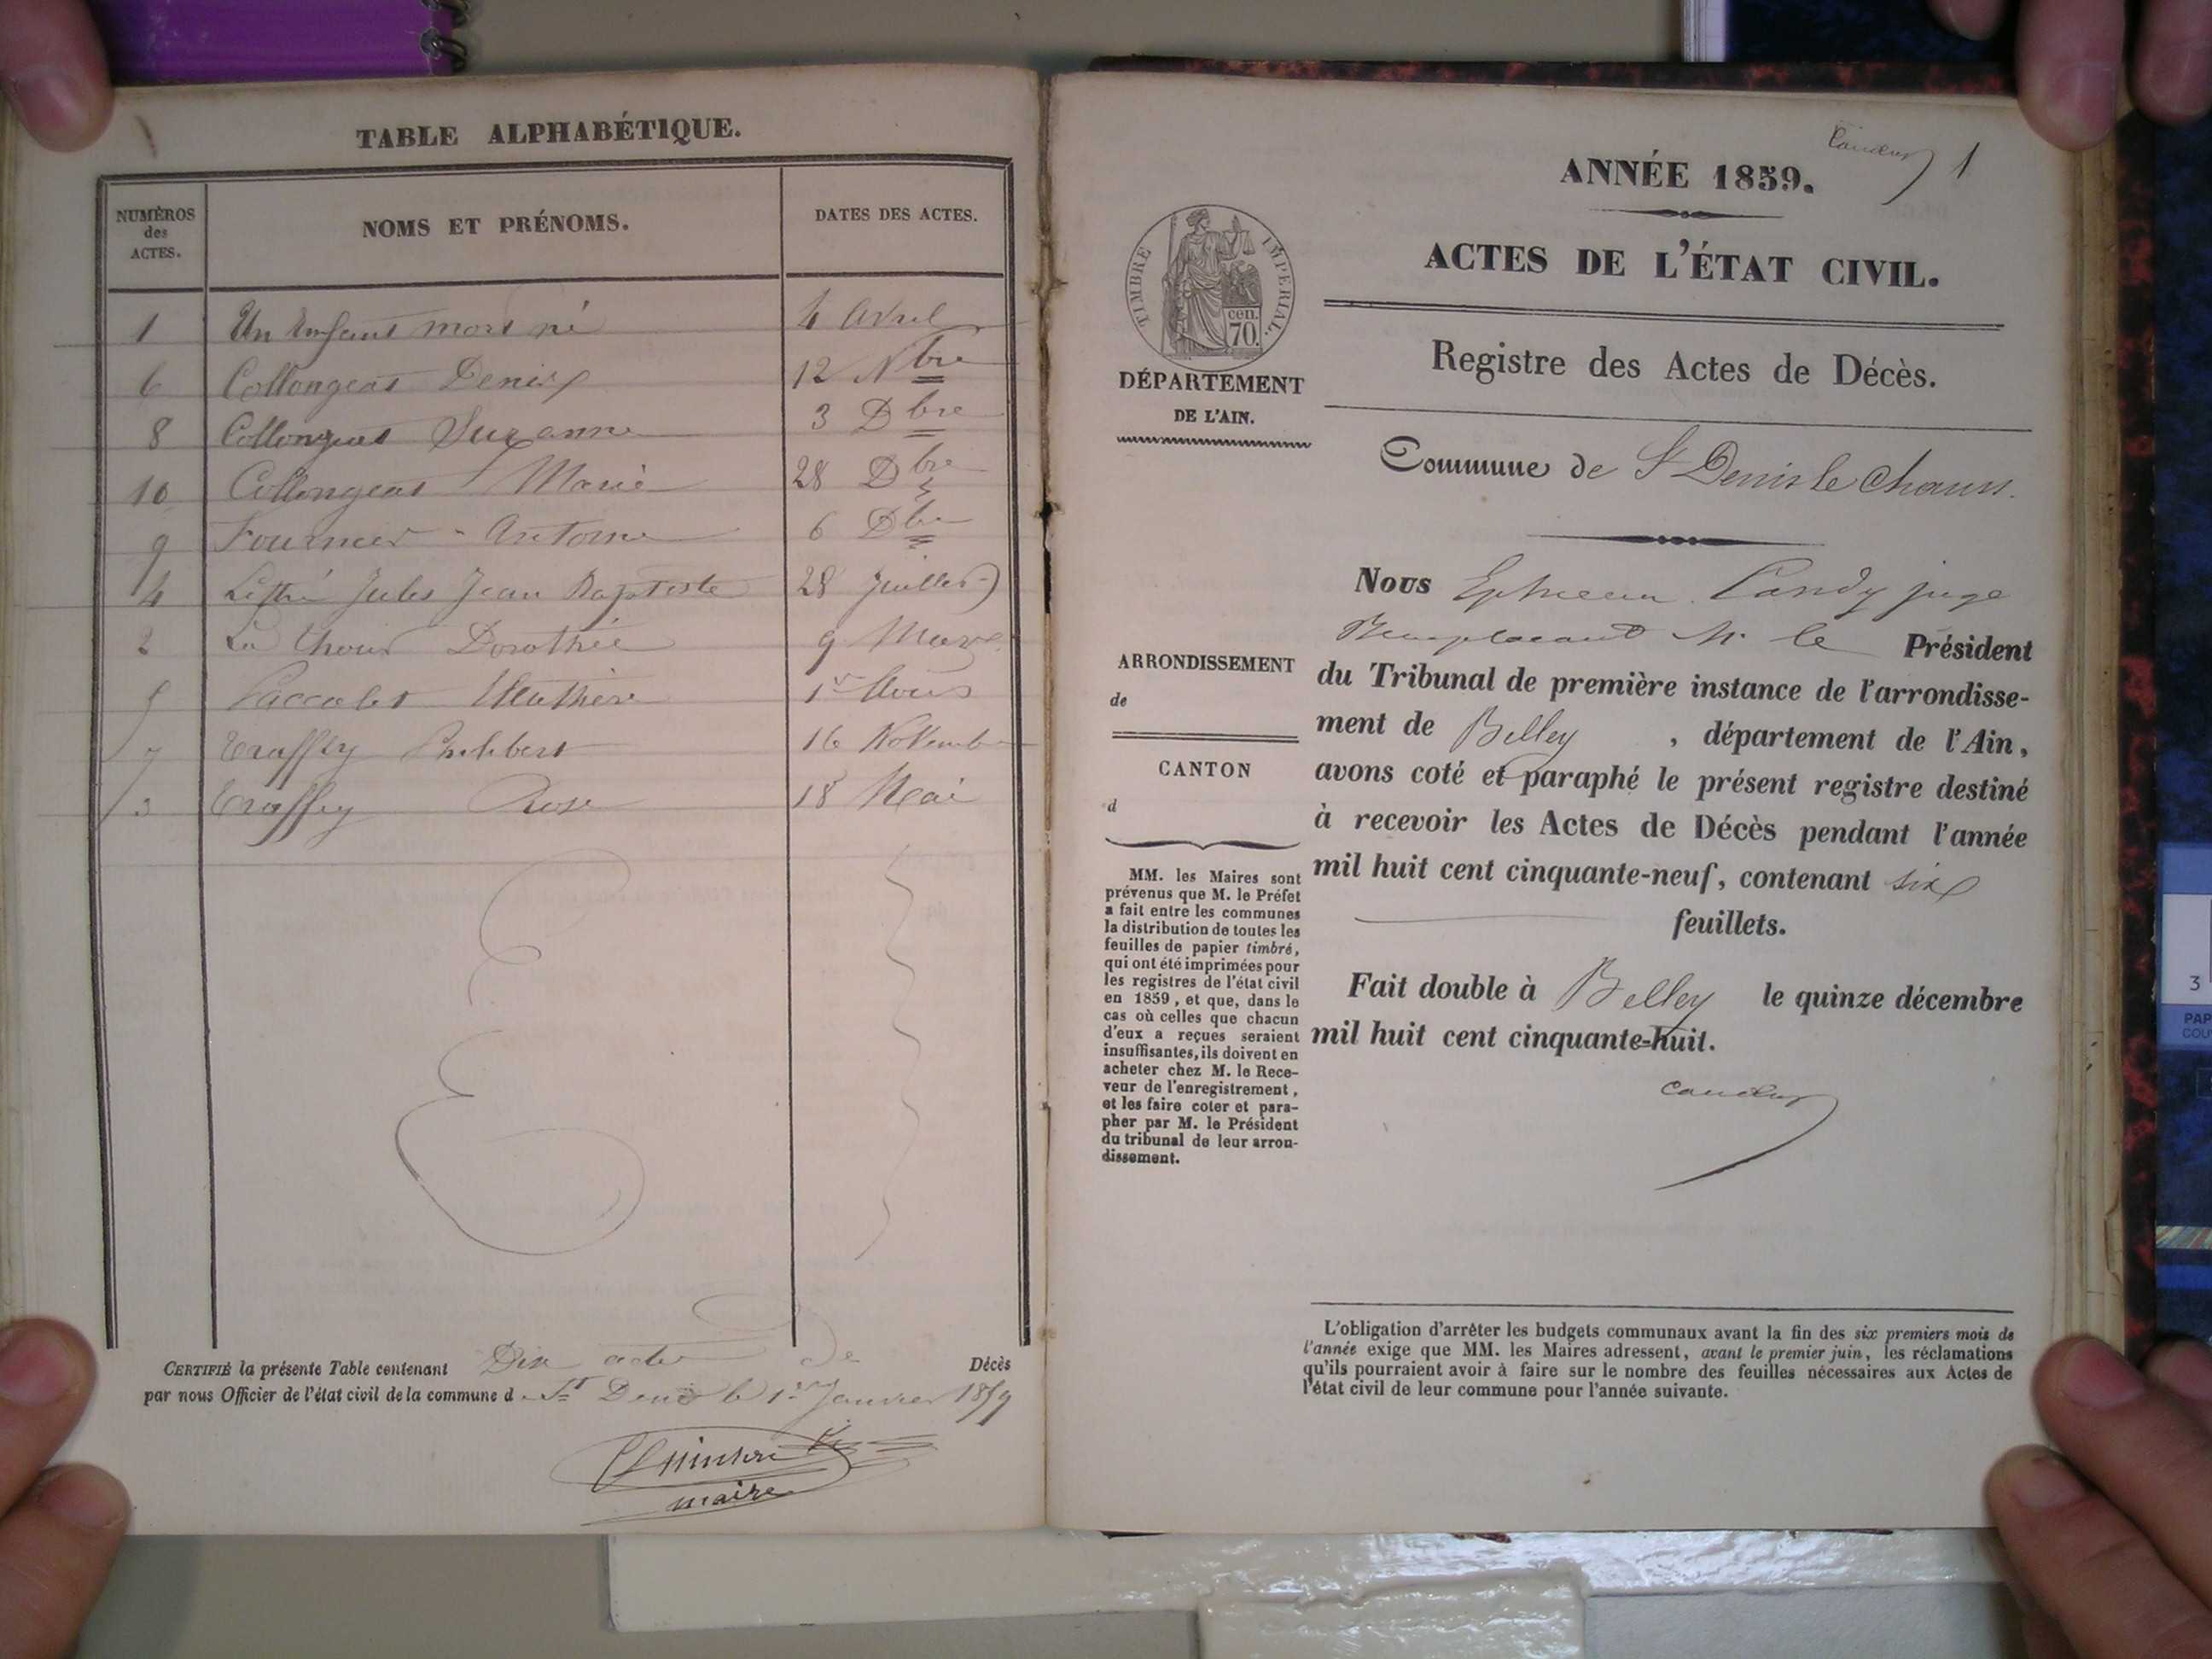 TABLE ALPHABÉTIQUE.
NUMÉROS des ACTES. NOMS ET PRÉNOMS. DATES DES ACTES.
1 Un Enfant mort né 4 Avril
6 Collongeat Denis 12 Nbre
8 Collongeat Suzanne 3 Dbre
10 Collongeat Marie 28 Dbre
9 Fournier - Antoine 6 Dbre
4 Jules Jean Baptiste 28 Juillet
2 Dorothée 9 Mars
5 1er Aout
7 Traffey Philibert 16 Novembre
3 Traffey Rose 18 Mai
CERTIFIÉ la présente Table contenant Dix actes de Décès
par nous Officier de l'état civil de la commune d St Denis le 1er Janvier 1859
maire
1
ANNÉE 1859.
ACTES DE L'ÉTAT CIVIL.
TIMBRE IMPÉRIAL.
cen.
70.
DÉPARTEMENT
DE L'AIN.
Registre des Actes de Décès.
Commune de St Denis le Chauss.
Nous juge
Remplacant Mr le Président
du Tribunal de première instance de l'arrondisse-
ment de Belley, département de l'Ain,
avons coté et paraphé le présent registre destiné
à recevoir les Actes de Décès pendant l'année
mil huit cent cinquante-neuf, contenant six
feuillets.
Fait double à Belley le quinze décembre
mil huit cent cinquante-huit.
ARRONDISSEMENT
de
CANTON
d
MM. les Maires sont
prévenus que M. le Préfet
a fait entre les communes
la distribution de toutes les
feuilles de papier timbré,
qui ont été imprimées pour
les registres de l'état civil
en 1859, et que, dans le
cas où celles que chacun
d'eux a reçues seraient
insuffisantes, ils doivent en
acheter chez M. le Rece-
veur de l'enregistrement,
et les faire coter et para-
pher par M. le Président
du tribunal de leur arron-
dissement.
L'obligation d'arrêter les budgets communaux avant la fin des six premiers mois de
l'année exige que MM. les Maires adressent, avant le premier juin, les réclamations
qu'ils pourraient avoir à faire sur le nombre des feuilles nécessaires aux Actes de
l'état civil de leur commune pour l'année suivante.
3
PAP
COU